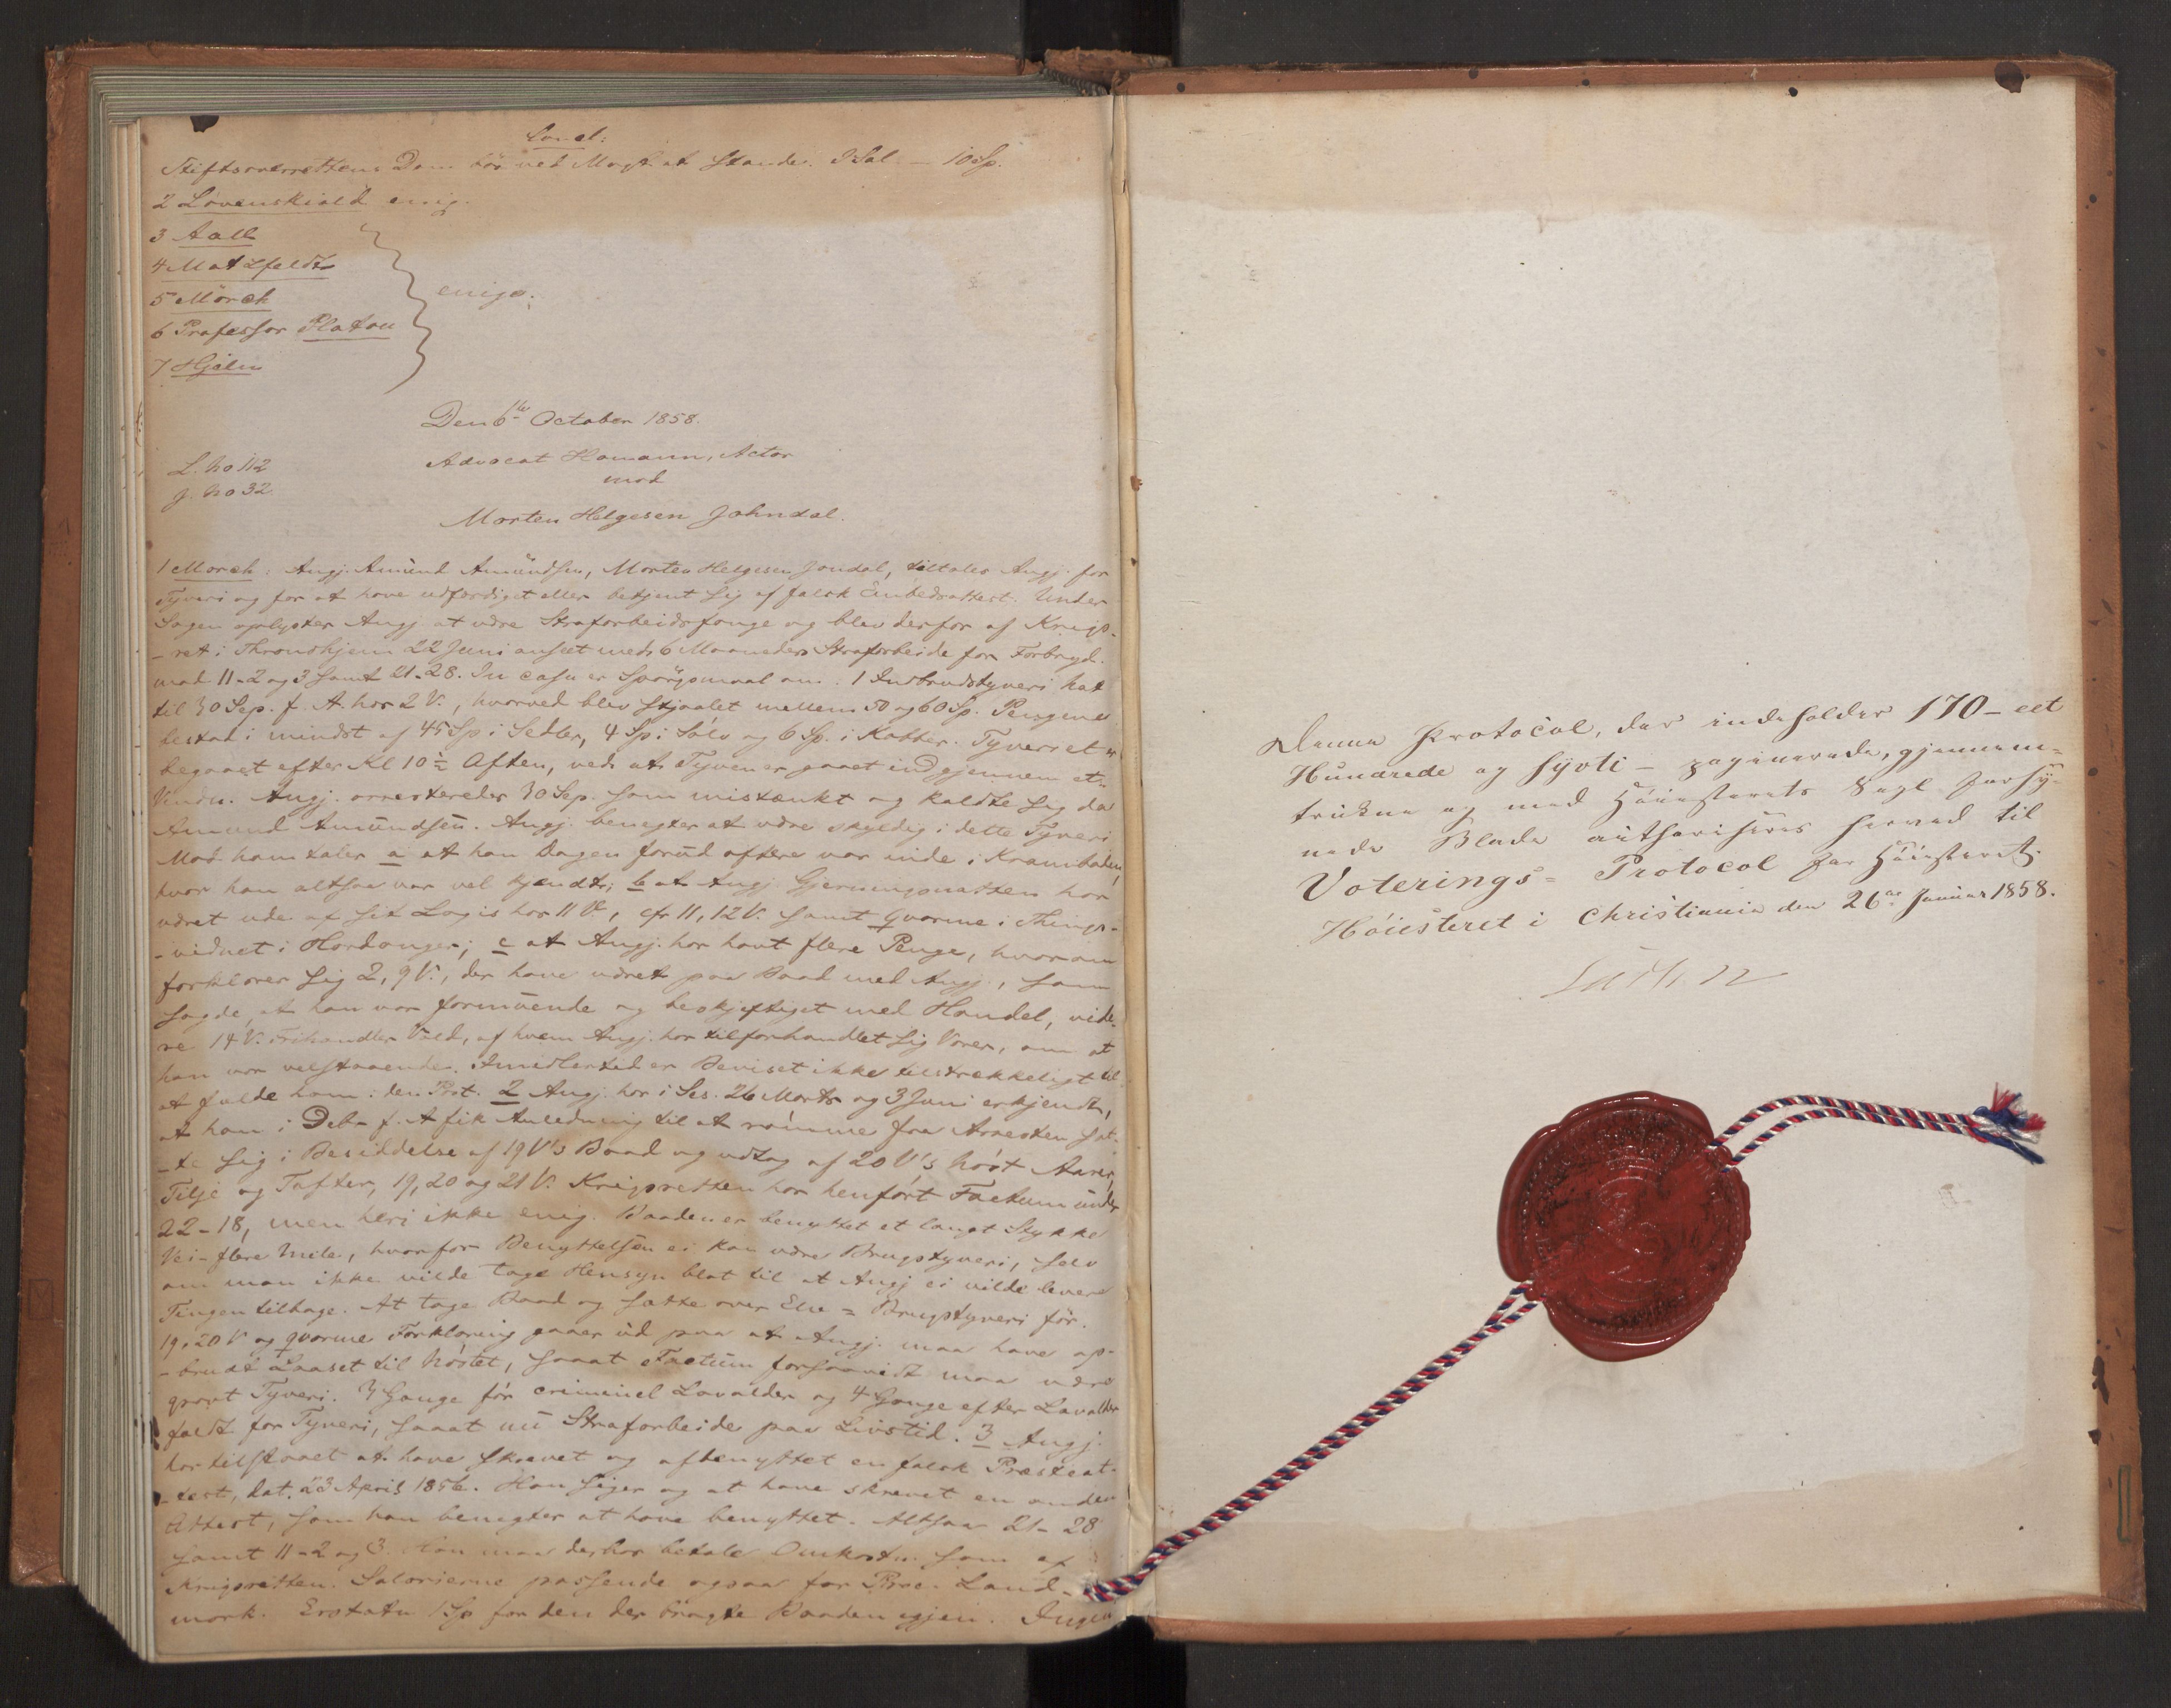 Concl:
Stiftsoverrettens Dom bör ved Magt at stande. I Sal. – 10 Sp.
2 Løvenskiold enig.
3 Aall
4 Motzfeldt
5 Mörch
6 Professor Platou
7 Hjelm
enige.
Den 6te October 1858.
L. No 112
Advocat Homann, Actor
J. No 32.
mod
Morten Helgesen Johndal.
1 Morch: Angj. Amund Amundsen, Morten Helgesen Jondal, tiltales Angj. for
Tyveri og for at have udfærdiget eller betjent sig af falsk Embedsattest. Under
Sagen oplystes Angj at være Strafarbeidsfange og blev derfor af Krigs-
-ret i Throndhjem 22 Juni anseet med 6 Maaneders Strafarbeide for Forbryd.
mod 11-2 og 3 samt 21-28. In casu er Spörgsmaal om: 1 Indbrudstyveri Nat
til 30 Sep. f. A. hos 2 V., hvorved blev stjaalet mellem 50 og 60 Sp. Pengene
bestod i mindst af 45 Sp i Sedler, 4 Sp i Sölv og 6 Sp. i Kobber. Tyveriet er
begaaet efter Kl 10½ Aften, ved at Tyven er gaaet ind gjennem et
Vindu. Angj. arresteredes 30 Sep. som mistænkt og kaldte sig da
Amund Amundsen. Angj. benegter at være skyldig i dette Tyveri
Mod ham taler a at han Dagen forud oftere var inde i Kramboden,
hvor han altsaa var vel kjendt; b at Angj. Gjerningsnatten har
været ude af sit Logis hos 11 V., cfr 11, 12 V. samt qvorine i Things-
-vidnet i Hardanger; c at Angj. har havt flere Penge, hvorom
forklarer sig 2, 9 V., der have været paa Baad med Angj., som
sagde, at han var formuende og beskjeftiget med Handel, vide-
re 14 V. Frihandler Vold, af hvem Angj. har tilforhandlet sig Varer, om at
han var velstaaende. Imidlertid er Beviset ikke tilstrækkeligt til
at fælde ham i den Post. 2 Angj. har i Ses. 26 Marts og 3 Juni erkjendt,
at han i Deb. f. A fik Anledning til at römme fra Arresten sat-
-te sig i Besiddelse af 19 V's Baad og udtog af 20 V's Nöst Aarer,
Tilje og Tofter, 19, 20 og 21 V. Krigsretten har henfört Factum under
22-18, men heri ikke enig. Baaden er benyttet et langt Stykke
Vei - flere Mile, hvorfor Benyttelsen ei kan være Brugstyveri, selv
om man ikke vilde tage Hensyn blot til at Angj ei vilde levere
Tingen tilbage. At tage Baad og sætte over Elv = Brugstyveri för.
19, 20 V og qvorine Forklaring gaaer ud paa at Angj. maa have op-
-brudt Laaset til Nöstet, saaat Factum forsaavidt maa være
grovt Tyveri. 3 Gange för criminel Lavalder og 4 Gange efter Lavalder
fældt for Tyveri, saaat nu Strafarbeide paa Livstid. 3 Angj.
har tilstaaet at have skrevet og afbenyttet en falsk Præsteat-
-test, dat. 23 April 1856. Han siger og at have skrevet en anden
Attest, som han benegter at have benyttet. Altsaa 21-28
samt 11-2 og 3. Han maa derhos betale Omkostn. som af
Krigsretten. Salarierne passende ogsaa for Proc. Land-
mark. Erstatn 1 Sp for den der bragte Baaden igjen. Ingen
Denne Protocol, der indeholder 170 – eet
Hundrede og Sytti – paginerede, gjennem-
trukne og med Höiesterets Segl forsy-
nede Blade authoriseres herved til
Voterings-Protocol for Höiesteret.
Höiesteret i Christiania den 26de Januar 1858.